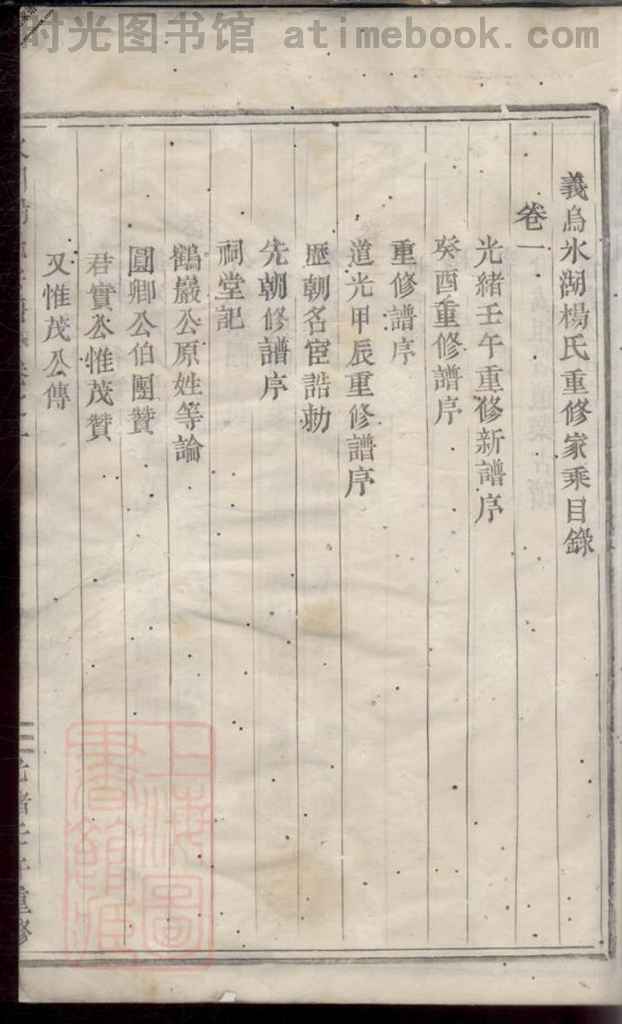 时光图书馆 atimebook.com
義烏氷湖楊氏重修家乘目錄
卷一
光緒壬午重修新譜序
癸酉重修譜序
重修譜序
道光甲辰重修譜序
歷朝名宦誥勅
先朝修譜序
祠堂記
鶴巖公原姓等論
圓卿公伯團贊
君實公惟茂贊
又惟茂公傳
上海圖書館藏